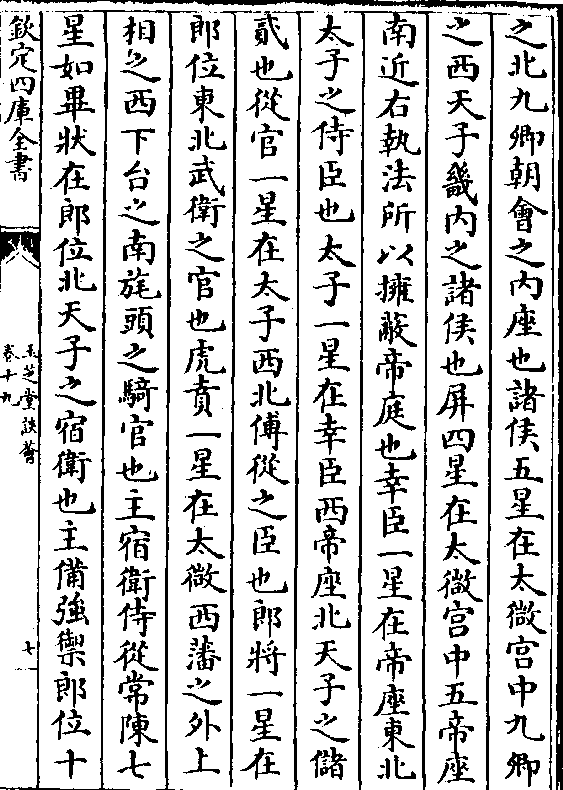 之北九卿朝會之内座也諸侯五星在太微宫中九卿
之西天子畿内之諸侯也屏四星在太微宫中五帝座
南近右執法所以擁蔽帝庭也幸臣一星在帝座東北
太子之侍臣也太子一星在幸臣西帝座北天子之儲
貳也從官一星在太子西北傅從之臣也郎將一星在
郎位東北武衛之官也虎賁一星在太微西藩之外上
相之西下台之南旄頭之騎官也主宿衛侍從常陳七
星如畢狀在郎位北天子之宿衛也主備強禦郎位十
欽定四庫全書
玉芝堂談薈
卷十九
七